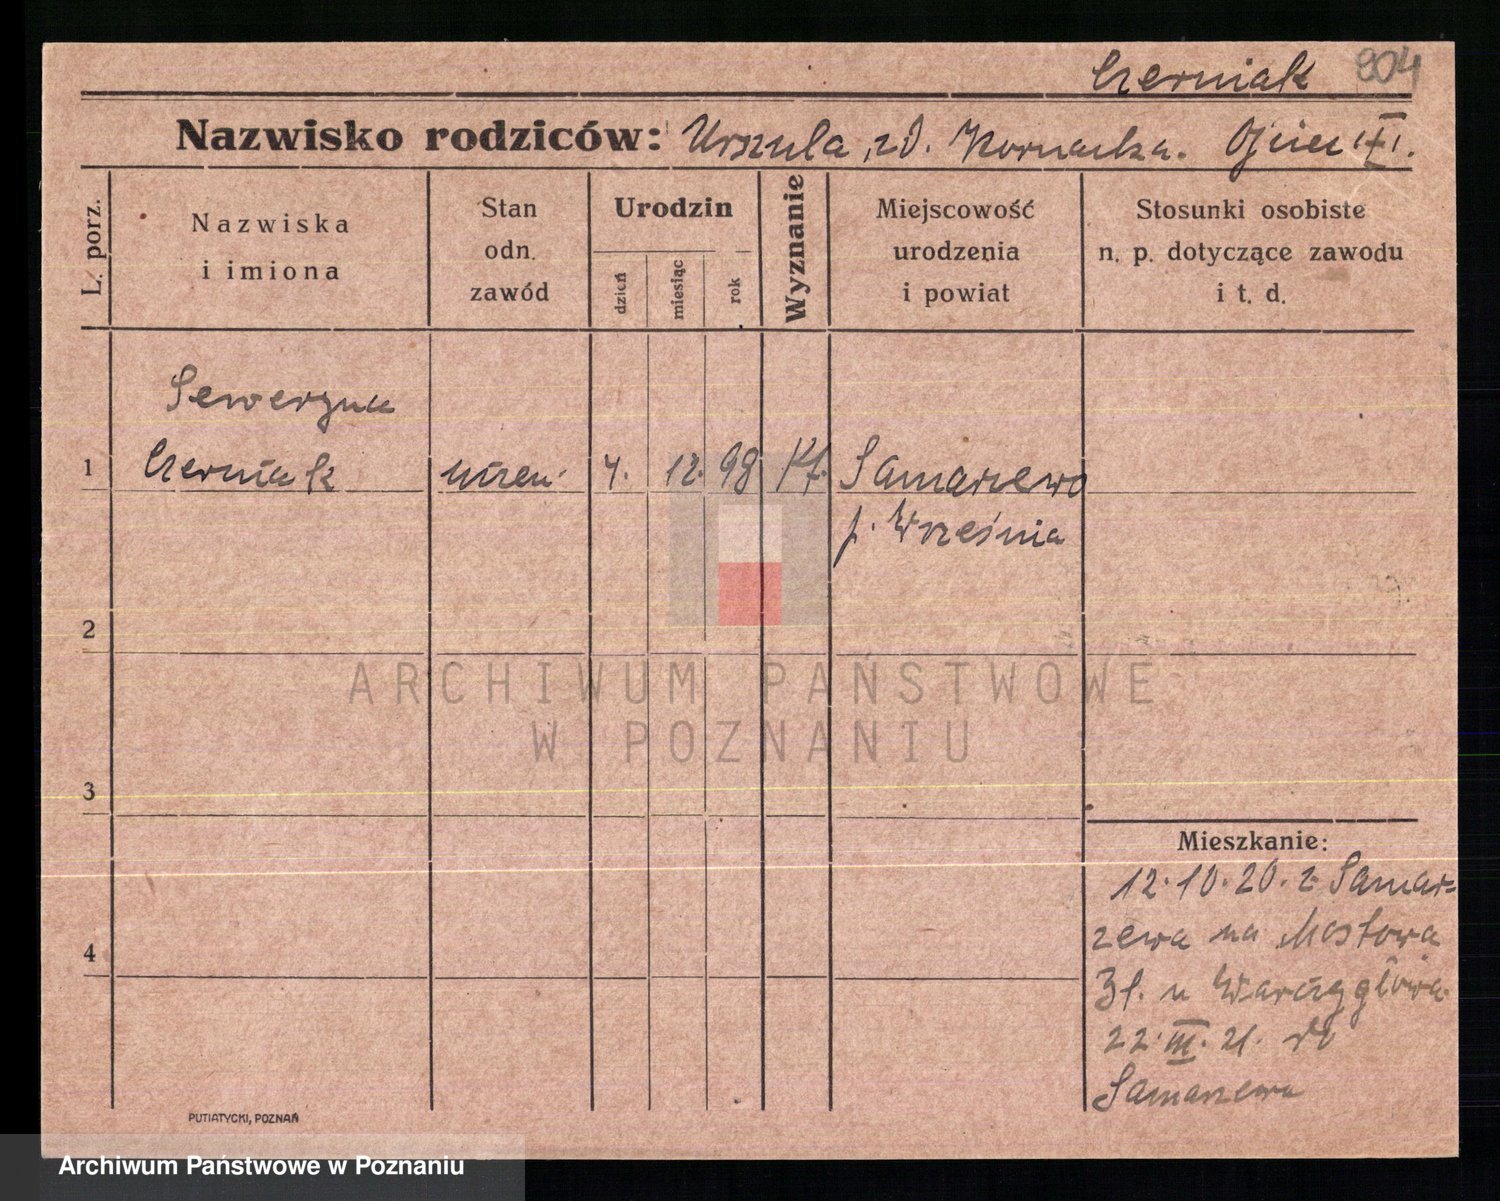 Czerniak 804
Nazwisko rodziców: Urszula, zd. Kornacka. Ojciec
L. porz.
Nazwiska
i imiona
Stan
odn.
zawód
Urodzin
dzień
miesiąc
rok
Wyznanie
Miejscowość
urodzenia
i powiat
Stosunki osobiste
n. p. dotyczące zawodu
i t. d.
Seweryna
1 Czerniak 4. 12. 98 kt. Samarzewo
p. Września
2
ARCHIWUM PAŃSTWOWE
W POZNANIU
3
4
Mieszkanie:
12.10.20. z Samar-
zewa na Mostowa
u
22.III.21. do
Samarzewa
PUTIATYCKI, POZNAŃ
Archiwum Państwowe w Poznaniu